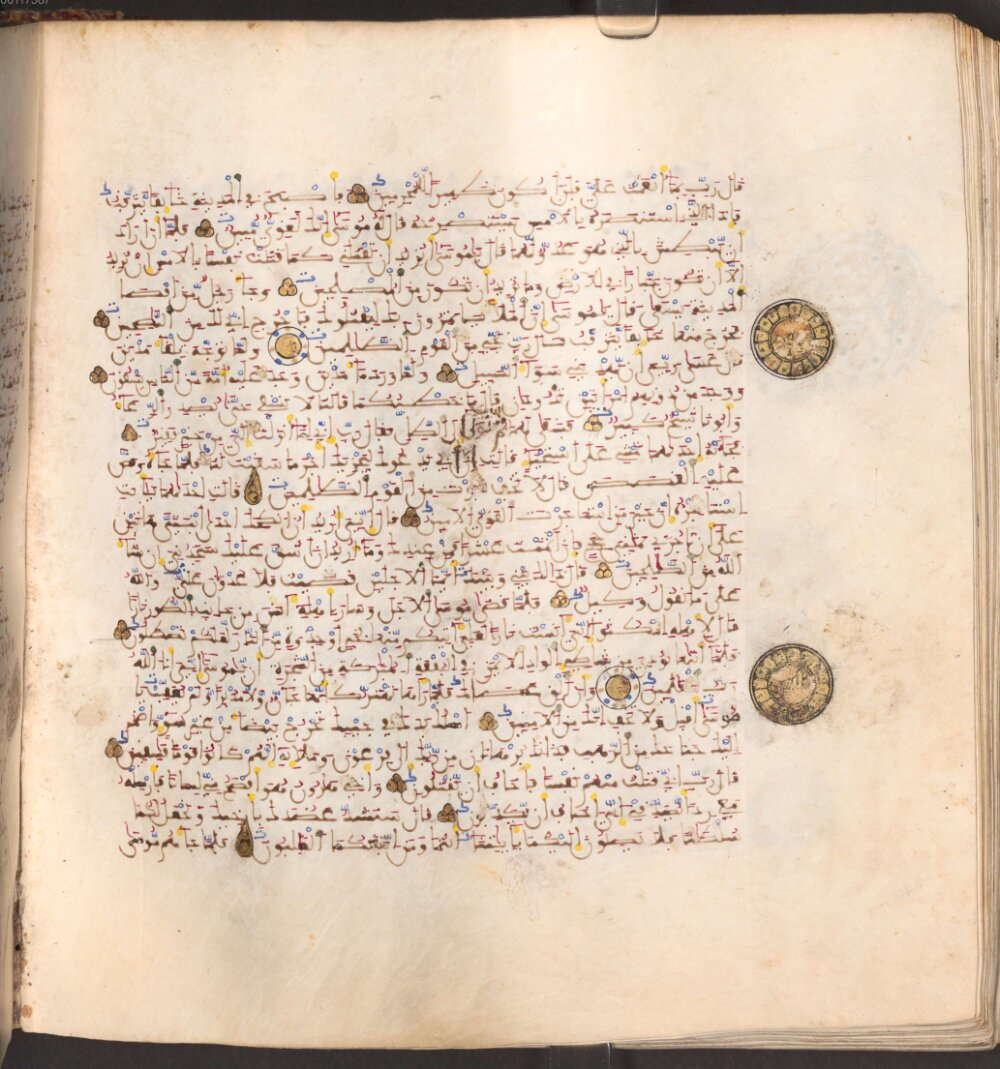 قال رب بما أنعمت علي فلن أكون ظهيرا للمجرمين فأصبح في المدينة خائفا يترقب
فإذا الذي استنصره بالأمس يستصرخه قال له موسى إنك لغوي مبين فلما أن أراد
أن يبطش بالذي هو عدو لهما قال يموسى أتريد أن تقتلني كما قتلت نفسا بالأمس إن تريد
إلا أن تكون جبارا في الأرض وما تريد أن تكون من المصلحين وجاء رجل من أقصا
المدينة يسعى قال يموسى إن الملأ يأتمرون بك ليقتلوك فاخرج إني لك من النصحين
فخرج منها خائفا يترقب قال رب نجني من القوم الظلمين ولما توجه تلقاء مدين
قال عسى ربي أن يهديني سواء السبيل ولما ورد ماء مدين وجد عليه أمة من الناس يسقون
ووجد من دونهم امرأتين تذودان قال ما خطبكما قالتا لا نسقي حتى يصدر الرعا
وأبونا شيخ كبير فسقى لهما ثم تولى إلى الظل فقال رب إني لما أنزلت إلي من خير فقير
فجاءته إحدىهما تمشي على استحياء قالت إن أبي يدعوك ليجزيك أجر ما سقيت لنا فلما جاءه وقص
عليه القصص قال لا تخف نجوت من القوم الظلمين قالت إحدىهما يأبت
استأجره إن خير من استأجرت القوي الأمين قال إني أريد أن أنكحك إحدى ابنتي هاتين
على أن تأجرني ثمني حجج فإن أتممت عشرا فمن عندك وما أريد أن أشق عليك ستجدني إن شا
الله من الصلحين قال ذلك بيني وبينك أيما الأجلين قضيت فلا عدوان علي والله
على ما نقول وكيل فلما قضى موسى الأجل وسار بأهله آنس من جانب الطور نارا
قال لأهله امكثوا إني آنست نارا لعلي آتيكم منها بخبر أو جذوة من النار لعلكم تصطلون
فلما أتىها نودي من شاطئ الواد الأيمن في البقعة المبركة من الشجرة أن يموسى إني أنا الله
رب العلمين وأن ألق عصاك فلما رآها تهتز كأنها جان ولى مدبرا ولم يعقب يا
موسى أقبل ولا تخف إنك من الآمنين اسلك يدك في جيبك تخرج بيضاء من غير سوء واضمم
إليك جناحك من الرهب فذانك برهانان من ربك إلى فرعون وملإيه إنهم كانوا قوما فسقين
قال رب إني قتلت منهم نفسا فأخاف أن يقتلون وأخي هارون هو أفصح مني لسانا فأرسله
معي ردا يصدقني إني أخاف أن يكذبون قال سنشد عضدك بأخيك ونجعل لكما
سلطنا فلا يصلون إليكما بآيتنا أنتما ومن اتبعكما الغلبون فلما جاءهم موسى